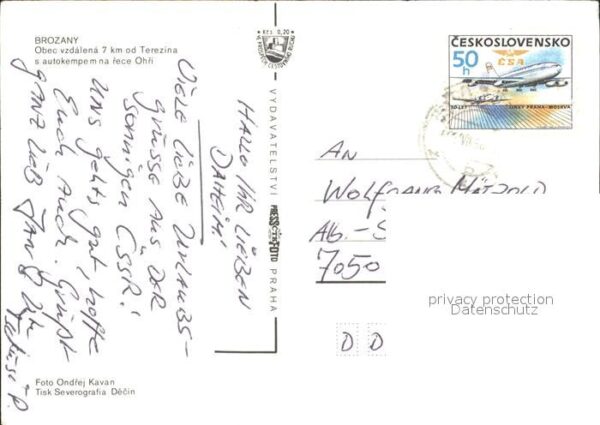 BROZANY
Obec vzdálená 7 km od Terezína
s autokempem na řece Ohři
Kčs 0,20
HALLO IHR LIEBEN
DAHEIM!
VIELE LIEBE URLAUBS-
GRÜSSE AUS DER
SONNIGEN ČSSR!
UNS gehts gut, hoffe
Euch auch. Grüßt
GANZ LIEB JAN &
VYDAVATELSTVÍ PRESSFOTO PRAHA
ČESKOSLOVENSKO
50 h
ČSA
50 LET LINKY PRAHA–MOSKVA
AN
Wolfgang
Alb.-S
7050
D D
privacy protection
Datenschutz
Foto Ondřej Kavan
Tisk Severografia Děčín